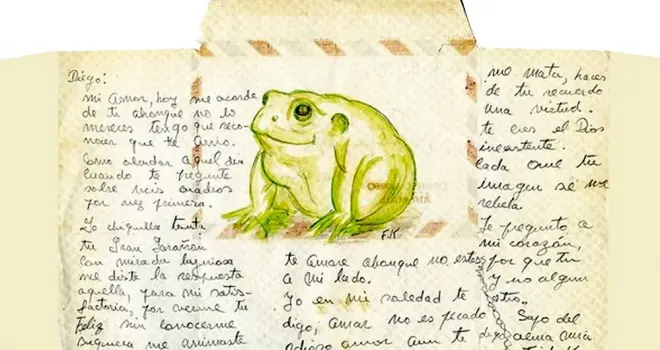 Diego:
mi amor, hoy me acorde
de ti ahonque no lo
mereces tengo que reco-
nocer que te amo.
Como olvidar aquel dia
cuando te pregunte
sobre mis cuadros
por vez primera.
Yo chiquilla tonta
tu gran
con mirada lujuriosa
me diste la respuesta
aquella, para mi satis-
factoria, por verme tu
Feliz sin conocerme
siquiera me animaste
F.K
te amare ahonque no estes
a mi lado.
Yo en mi soledad te
digo, amar no es pecado
amor aun te digo
me mata, haces
de tu recuerdo
una virtud.
te eres el Dios
cada que tu
imagen se me
rebela.
Le pregunto a
mi corazón,
por que tu
y no algun
otro.
Sapo del
alma mia